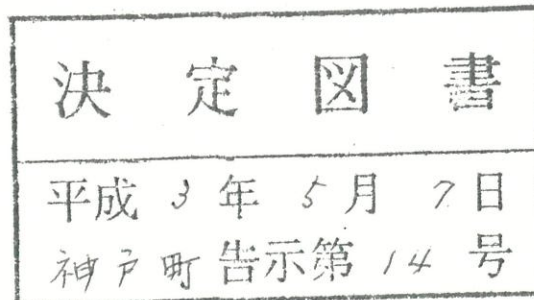 決定図書
平成3年5月7日
神戸町告示第14号